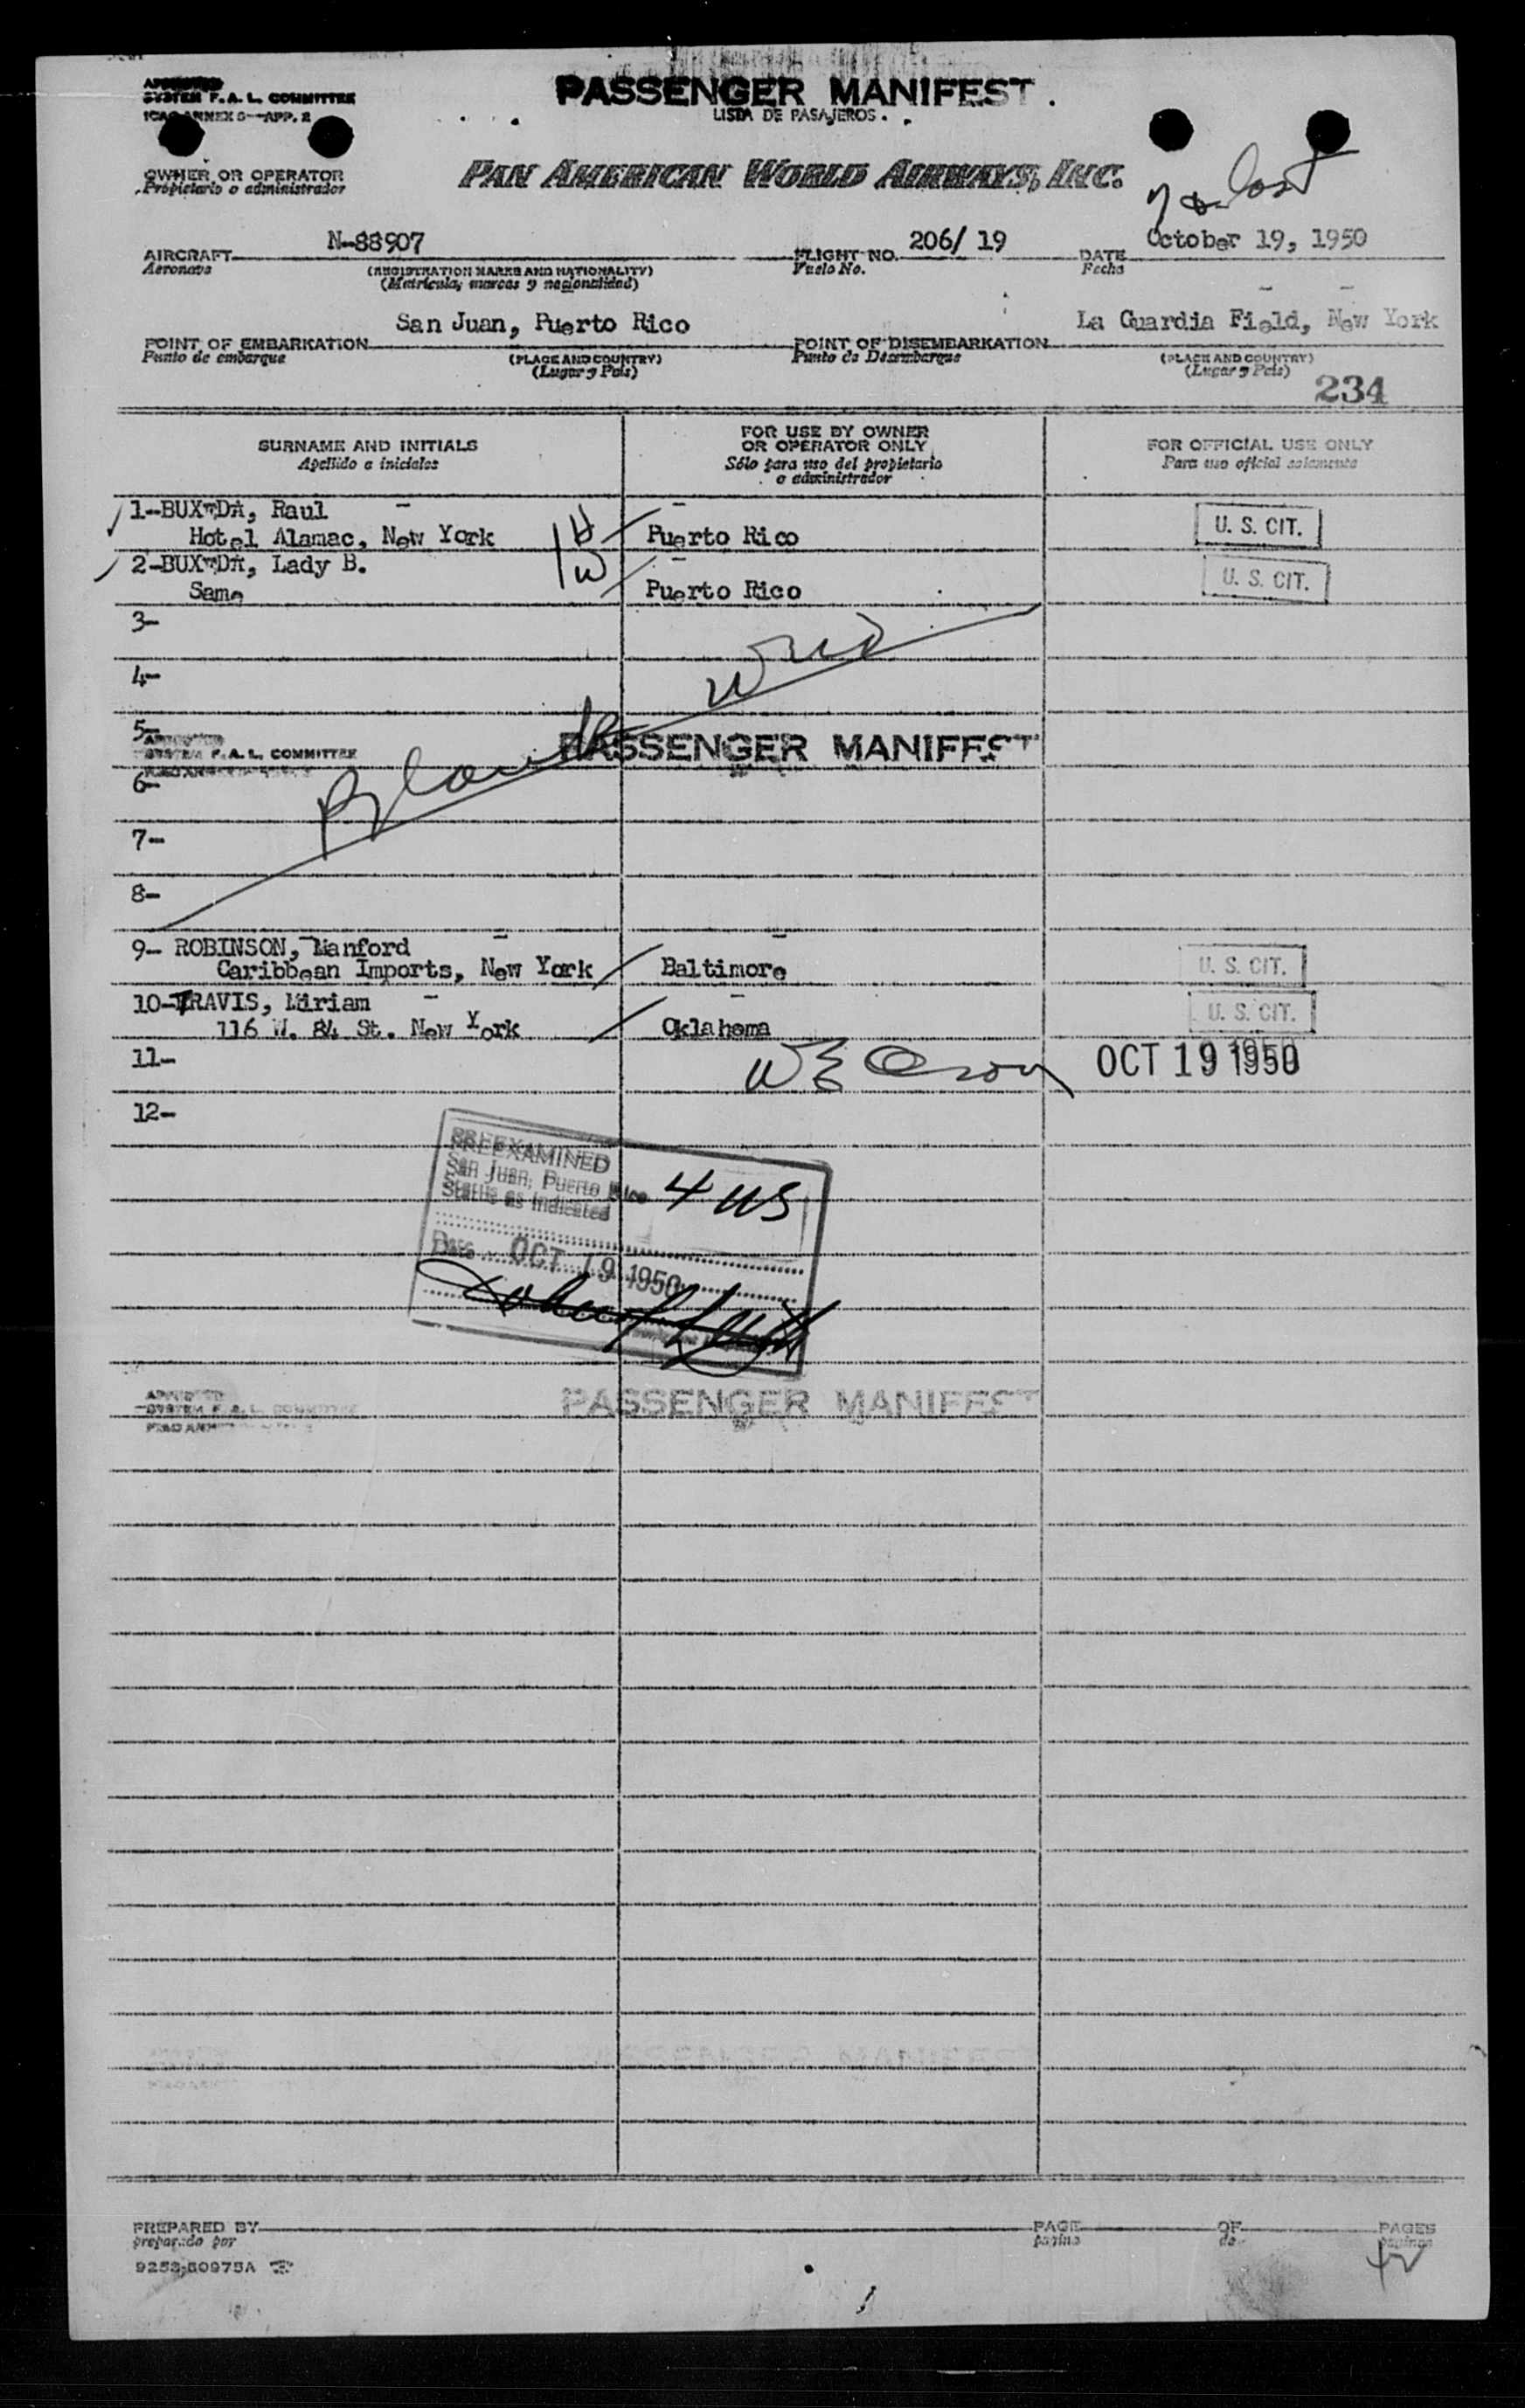 APPROVED
SYSTEM F.A.L. COMMITTEE
PASSENGER MANIFEST
LISTA DE PASAJEROS
OWNER OR OPERATOR
Propietario o administrador
PAN AMERICAN WORLD AIRWAYS, INC.
AIRCRAFT N-88907
Aeronave
(REGISTRATION MARKS AND NATIONALITY)
(Matricula, marcas y nacionalidad)
FLIGHT NO. 206/ 19
Vuelo No.
DATE October 19, 1950
Fecha
POINT OF EMBARKATION San Juan, Puerto Rico
Punto de embarque
(PLACE AND COUNTRY)
(Lugar y Pais)
POINT OF DISEMBARKATION La Guardia Field, New York
Punto de Desembarque
(PLACE AND COUNTRY)
(Lugar y Pais)
234
SURNAME AND INITIALS
Apellido e iniciales
FOR USE BY OWNER
OR OPERATOR ONLY
Sólo para uso del propietario
o administrador
FOR OFFICIAL USE ONLY
Para uso oficial solamente
1-BUXEDA, Raul
Hotel Alamac, New York H Puerto Rico U. S. CIT.
2-BUXEDA, Lady B.
Same W Puerto Rico U. S. CIT.
3-
4-
5-
SYSTEM F.A.L. COMMITTEE
PASSENGER MANIFEST
Blank
6-
7-
8-
9- ROBINSON, Manford
Caribbean Imports, New York Baltimore U. S. CIT.
10-TRAVIS, Miriam
116 W. 84 St. New York Oklahoma U. S. CIT.
11- OCT 19 1950
12-
PREEXAMINED
San Juan, Puerto Rico
Status as indicated
4 US
Date OCT 19 1950
SYSTEM F.A.L. COMMITTEE
PASSENGER MANIFEST
PASSENGER MANIFEST
PREPARED BY
preparado por
PAGE
pagina
OF
de
PAGES
paginas
9253-50975A